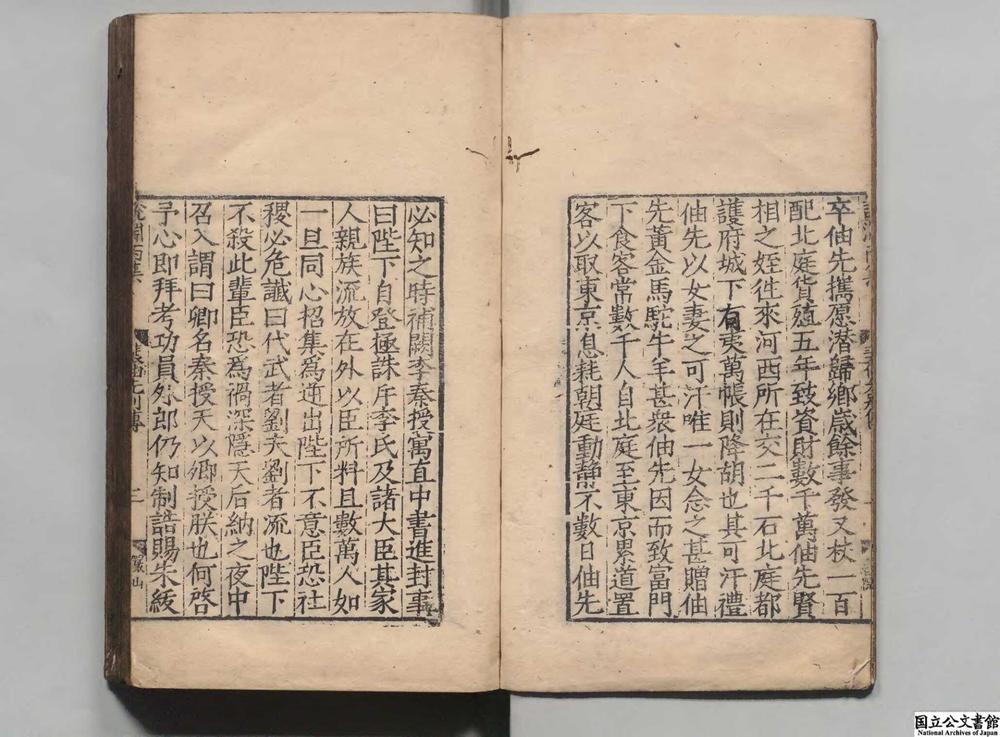 卒伷先攜原潛歸鄉歳餘事發又杖一百
配北庭貨殖五年致資財數千萬伷先賢
相之姪徃來河西所在交二千石北庭都
護府城下有夷萬帳則降胡也其可汗禮
伷先以女妻之可汗唯一女念之甚贈伷
先黃金馬駝牛羊甚衆伷先因而致富門
下食客常數千人自北庭至東京累道置
客以取東京息耗朝庭動静不數日伷先
必知之時補闕李秦授寓直中書進封事
曰陛下自登極誅斥李氏及諸大臣其家
人親族流放在外以臣所料且數萬人如
一旦同心招集爲逆出陛下不意臣恐社
稷必危讖曰代武者劉夫劉者流也陛下
不殺此輩臣恐爲禍深隱天后納之夜中
召入謂曰卿名秦授天以卿授朕也何啓
予心即拜考功員外郎仍知制誥賜朱紱
国立公文書館
National Archives of Japan